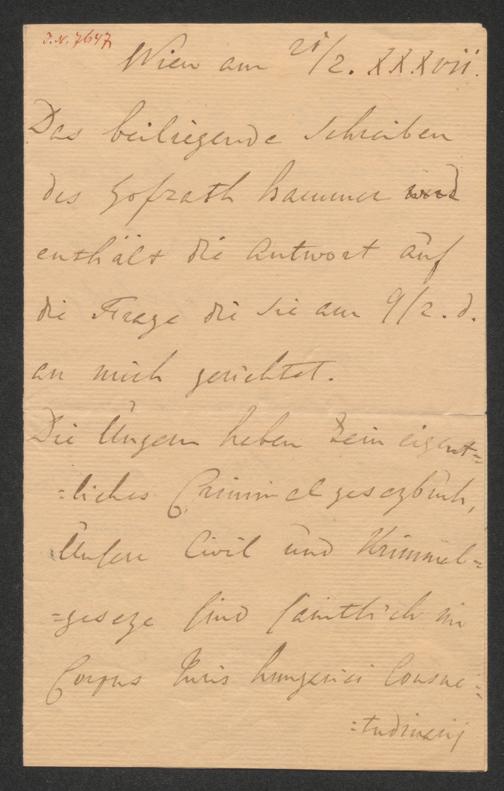 I.N. 7647
Wien am 25/2. XXXVII.
Das beiliegende Schreiben
des Hofrath Hammer wird
enthält die Antwort auf
die Frage die Sie am 9/2. d.
an mich gerichtet.
Die Ungern haben kein eigent=
=liches Criminalgesezbuch,
Unsere Civil und Kriminal=
=geseze sind sämtlich im
Corpus Juris hungarici Consue=
=tudinarij